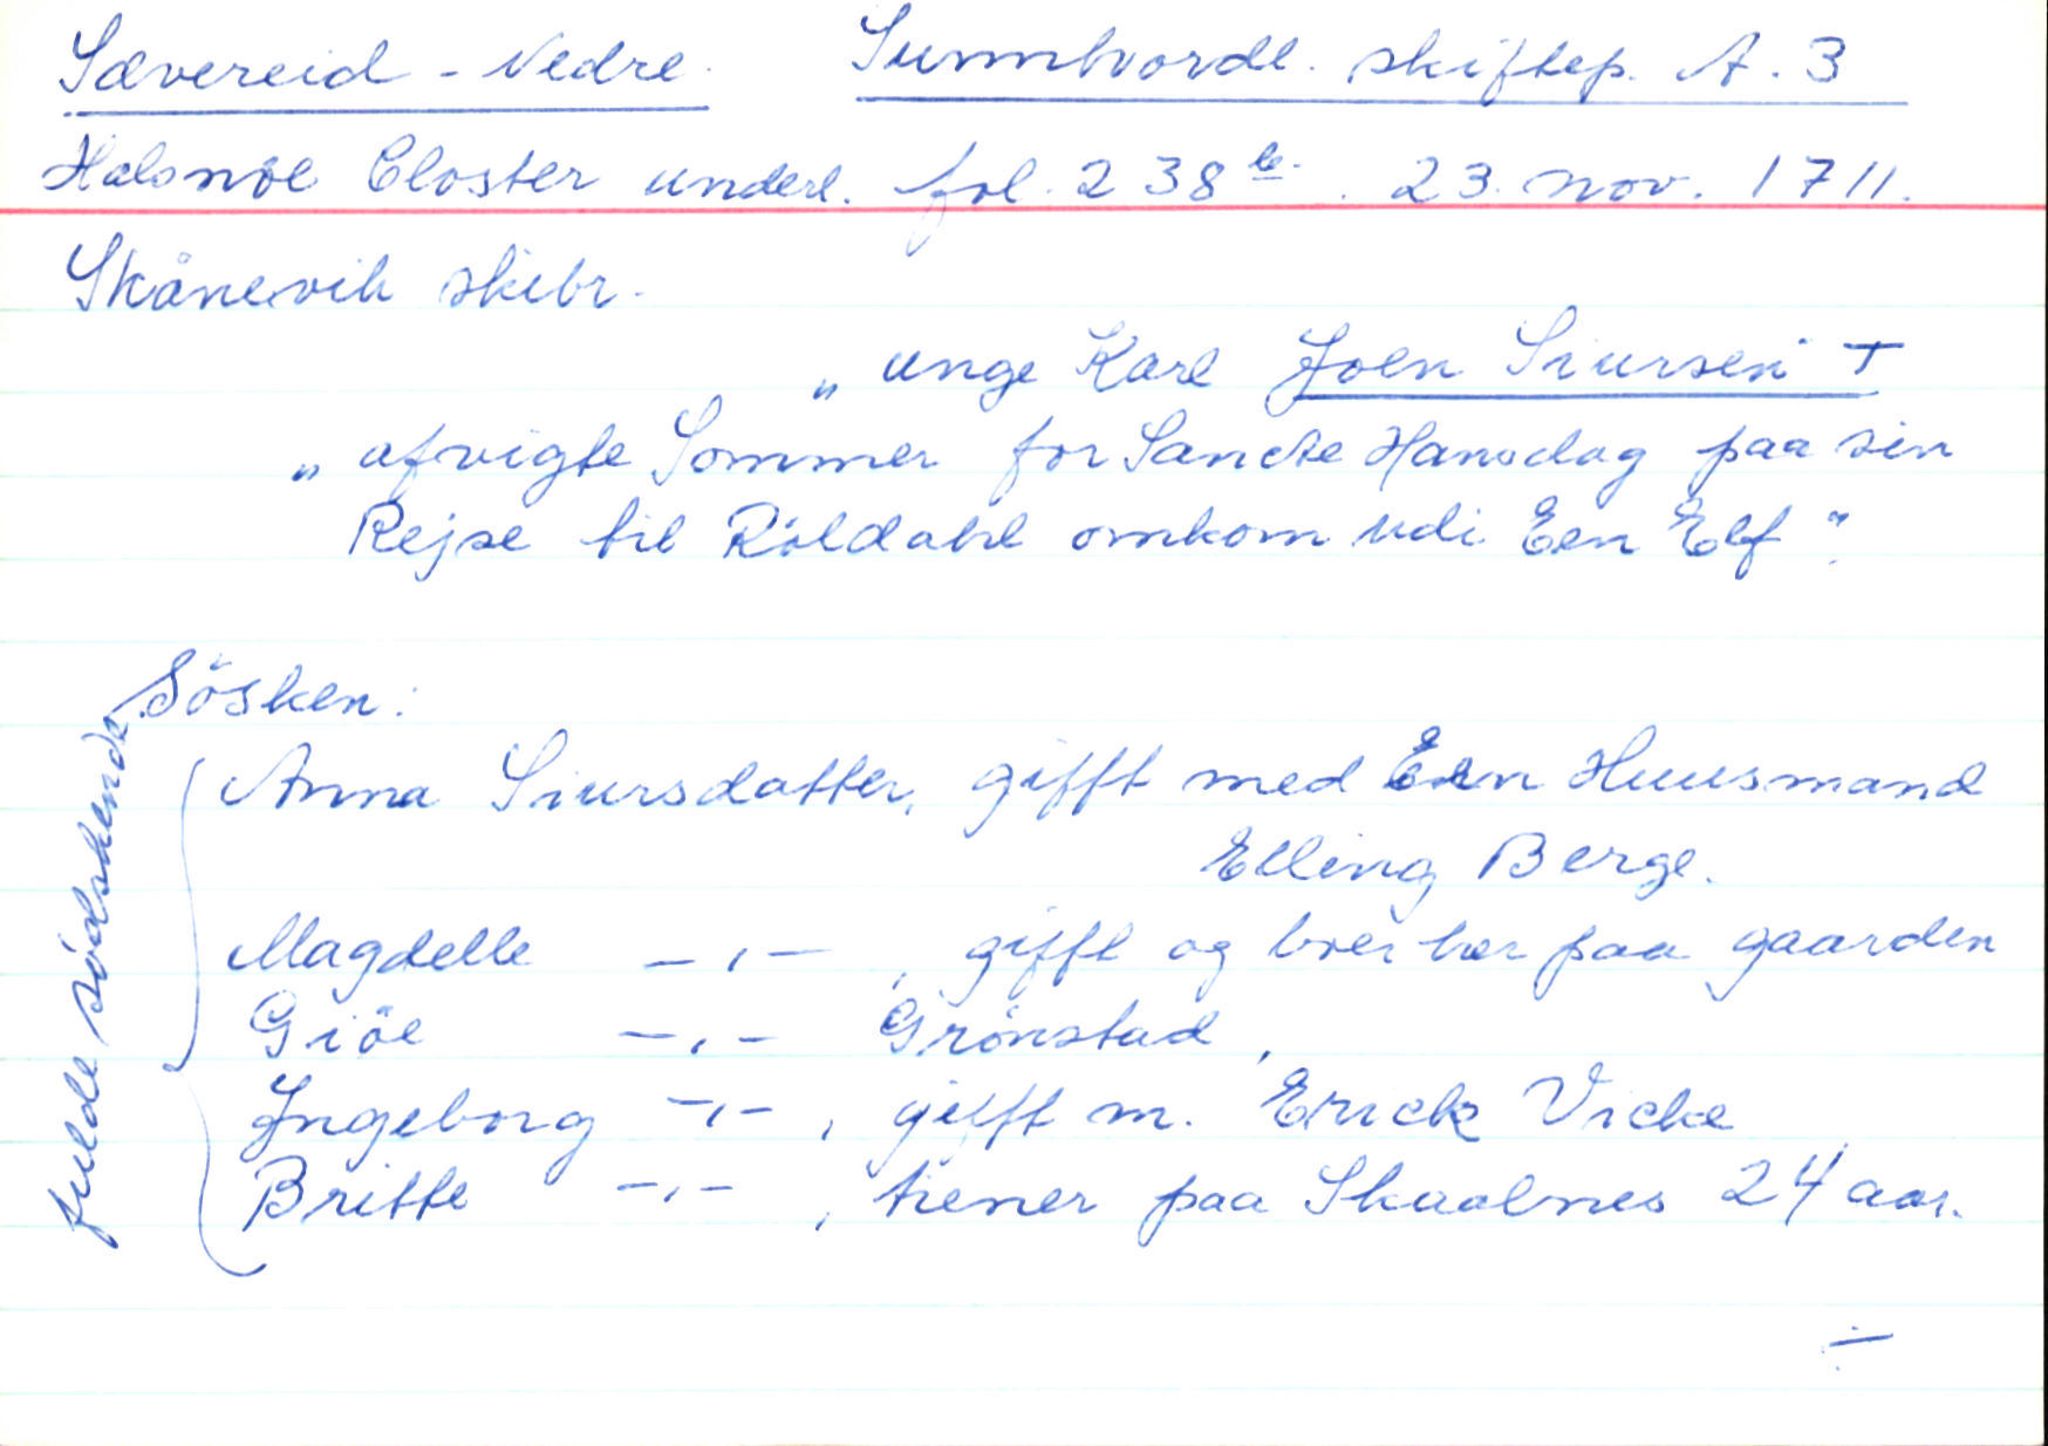 Sævereid - Nedre. Sunnhordl. skiftep. A. 3
Halsnöe Closter underl. fol. 238 b. 23. nov. 1711.
Skånevik skibr.
„ unge Karl Joen Siursen +
„ afvigte Sommer for Sancte Hansdag paa sin
Rejse til Röldahl omkom udi Een Elf".
Sösken:
fulde södskende
Anna Siursdatter, gifft med Een Huusmand
Elling Berge.
Magdelle -,- , gifft og boer her paa gaarden
Giöe -,- Grönstad,
Ingeborg -,- , gifft m. Erick Vicke
Britte -,- , tiener paa Skaalnes 24 aar.